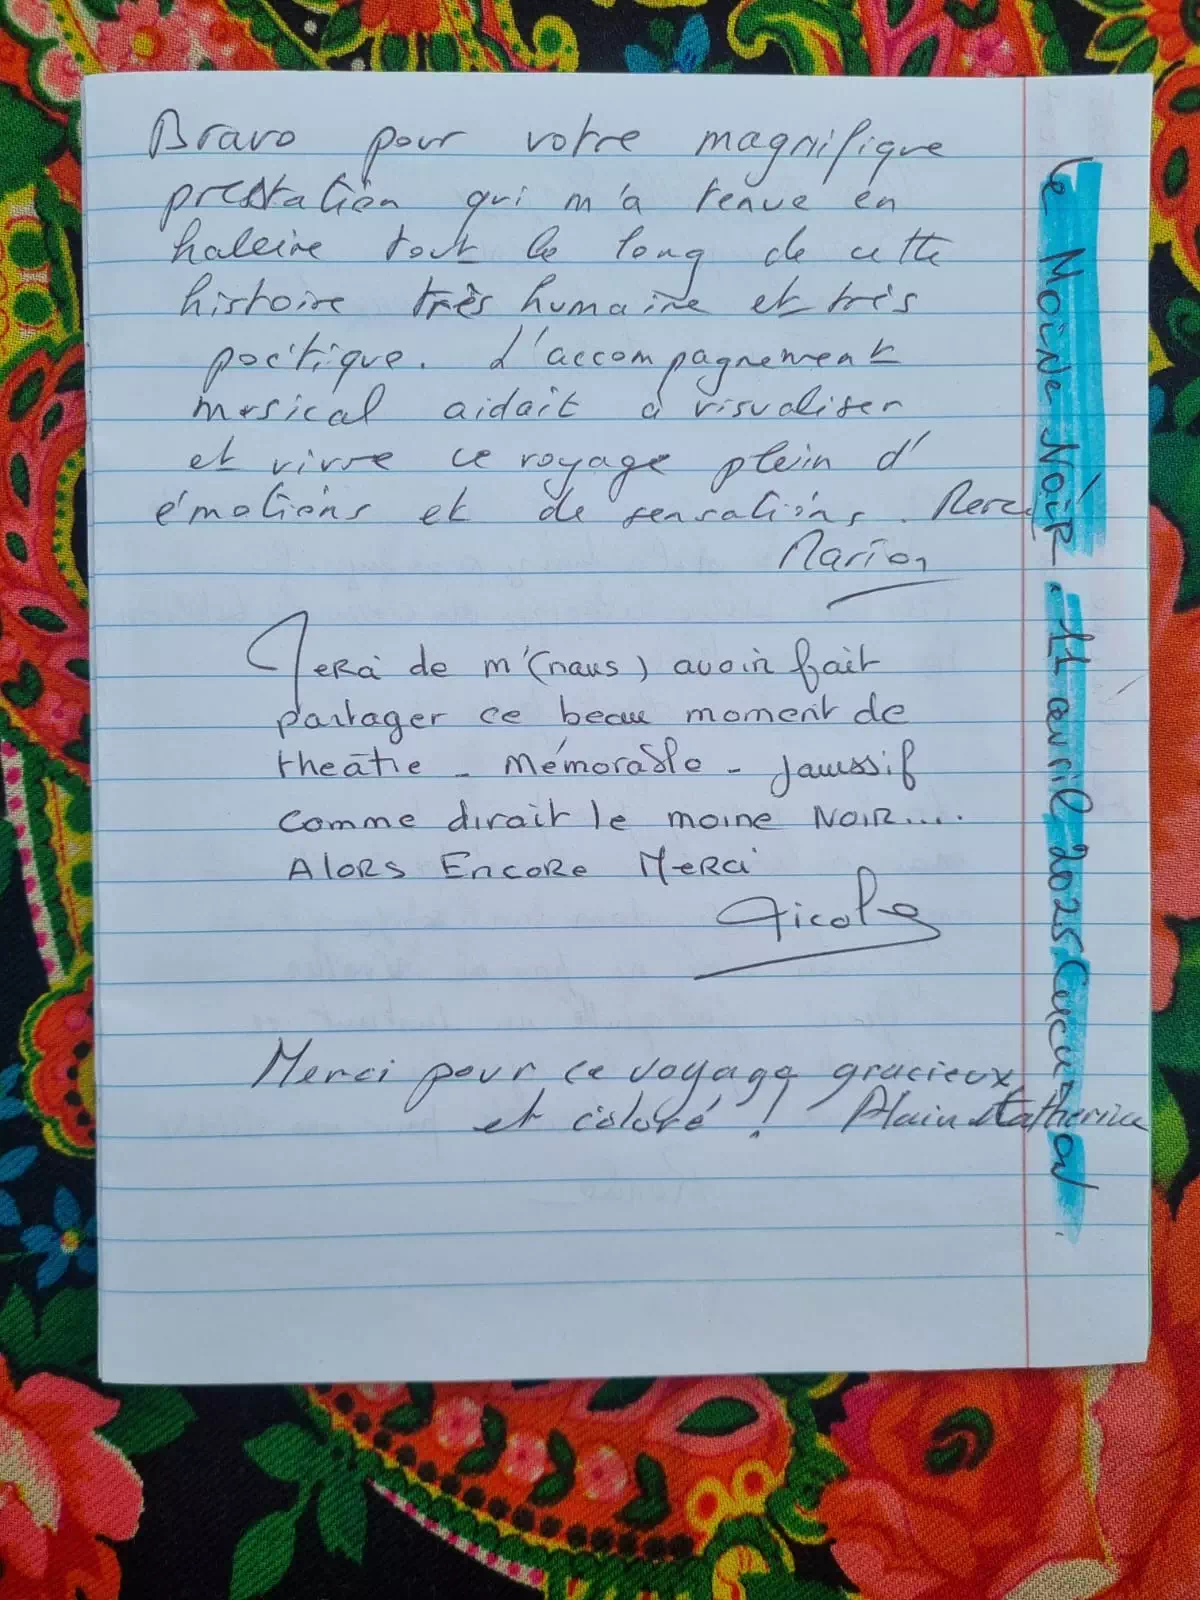 Bravo pour votre magnifique
prestation qui m'a tenue en
haleine tout le long de cette
histoire très humaine et très
poétique. L'accompagnement
musical aidait à visualiser
et vivre ce voyage plein d'
émotions et de sensations. Merci
Marion
Merci de m'(nous) avoir fait
partager ce beau moment de
theâtre - Mémorable - Jouissif
comme dirait le moine NOIR....
Alors Encore Merci
Nicole
Merci pour ce voyage gracieux
et coloré ! Alain et Catherine
Le Moine Noir. 11 avril 2025 Cucuron.